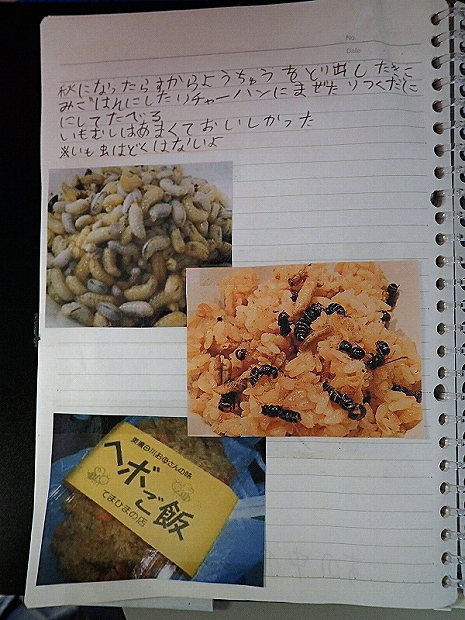 No.
Date
秋になったらすからようちゅうをとり出したきこ
みごはんにしたりチャーハンにまぜたりつくだに
にしてたべる
いもむしはあまくておいしかった
※いも虫はどくはないよ
美濃白川お母さんの味
ヘボご飯
てまひまの店